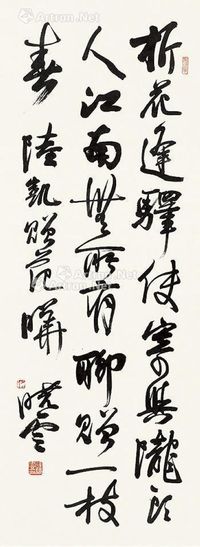 折花逢驛使寄與隴頭
人江南無所有聊贈一枝
春 陸凱贈范曄 曉雲
Artron.Net